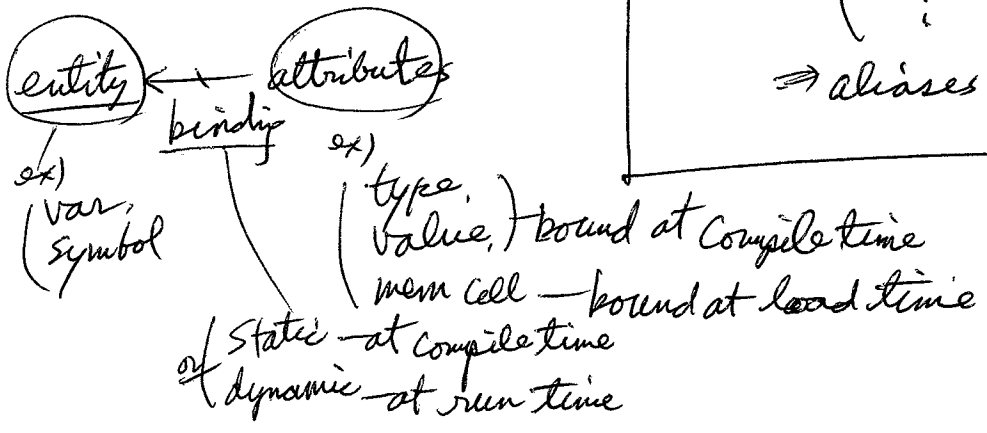 entity ← attributes
binding
ex)
var,
symbol
ex)
type,
value, bound at compile time
mem cell — bound at load time
or
static - at compile time
dynamic - at run time
⇒ aliases